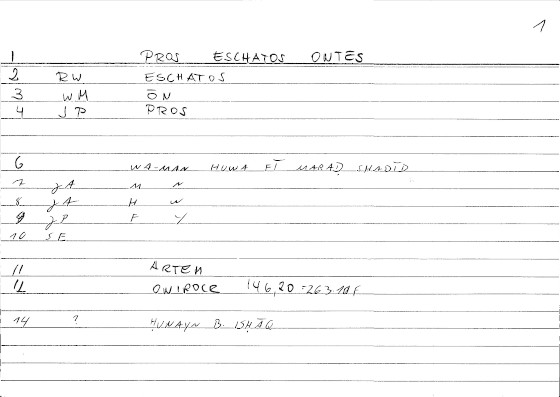 1
1 PROS ESCHATOS ONTES
2 RW ESCHATOS
3 WM ŌN
4 JP PROS
6 WA-MAN HUWA FĪ MARAḌ SHADĪD
7 JA M N
8 JA H W
9 JP F Y
10 SE
11 ARTEM
12 ONIROCR 146,20 = 263.
14 ? ḤUNAYN B. ISḤĀQ